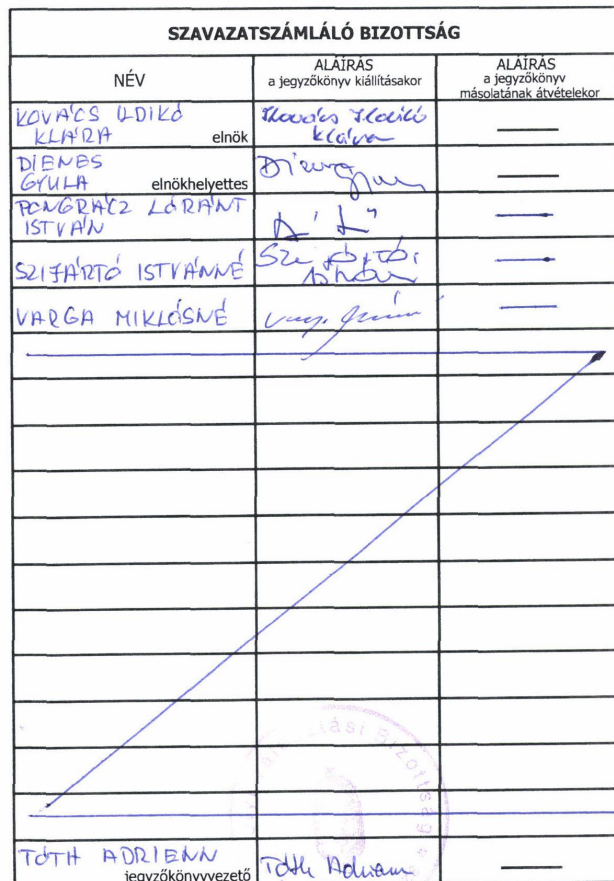 SZAVAZATSZÁMLÁLÓ BIZOTTSÁG
NÉV
ALÁÍRÁS
a jegyzőkönyv kiállításakor
ALÁÍRÁS
a jegyzőkönyv
másolatának átvételekor
KOVÁCS ILDIKÓ
KLÁRA elnök
Kovács Ildikó
Klára
DIENES
GYULA elnökhelyettes
Dienes
PONGRÁCZ LÓRÁNT
ISTVÁN
SZIJÁRTÓ ISTVÁNNÉ
VARGA MIKLÓSNÉ
Bizottság
TÓTH ADRIENN
jegyzőkönyvvezető
Tóth Adrienn